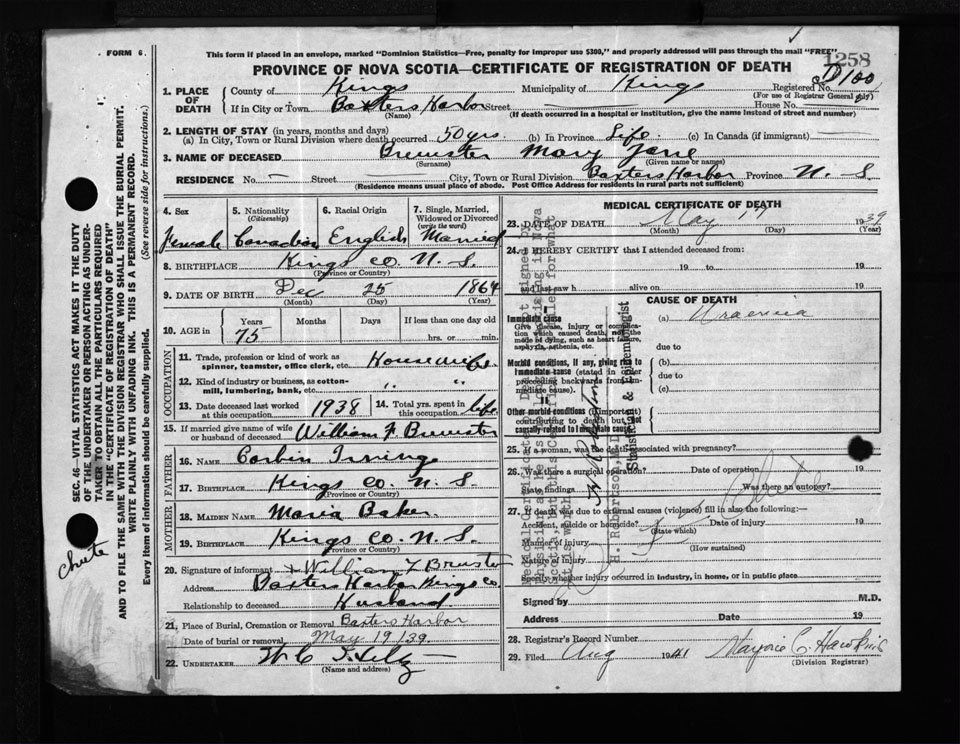 FORM 6.
This form if placed in an envelope, marked "Dominion Statistics—Free, penalty for improper use $300," and properly addressed will pass through the mail "FREE"
1258
PROVINCE OF NOVA SCOTIA—CERTIFICATE OF REGISTRATION OF DEATH
D100
1. PLACE OF DEATH
County of Kings Municipality of Kings Registered No.
(For use of Registrar General only)
If in City or Town Baxters Harbor Street House No.
(Name) (If death occurred in a hospital or institution, give the name instead of street and number)
2. LENGTH OF STAY (in years, months and days)
(a) In City, Town or Rural Division where death occurred 50 yrs. (b) In Province Life (c) In Canada (if immigrant)
3. NAME OF DECEASED Brewster Mary Jane
(Surname) (Given name or names)
RESIDENCE No. Street City, Town or Rural Division Baxters Harbor Province N. S.
(Residence means usual place of abode. Post Office Address for residents in rural parts not sufficient)
4. Sex Female
5. Nationality (Citizenship) Canadian
6. Racial Origin English
7. Single, Married, Widowed or Divorced (write the word) Married
8. BIRTHPLACE Kings Co. N. S.
(Province or Country)
9. DATE OF BIRTH Dec 25 1864
(Month) (Day) (Year)
10. AGE in Years Months Days If less than one day old
75 hrs. or min.
OCCUPATION
11. Trade, profession or kind of work as spinner, teamster, office clerk, etc. Housewife
12. Kind of industry or business, as cotton-mill, lumbering, bank, etc. " "
13. Date deceased last worked at this occupation 1938
14. Total yrs. spent in this occupation life
15. If married give name of wife or husband of deceased William F Brewster
FATHER
16. NAME Corbin Irving
17. BIRTHPLACE Kings Co. N. S.
(Province or Country)
MOTHER
18. MAIDEN NAME Maria Baker
19. BIRTHPLACE Kings Co. N. S.
(Province or Country)
20. Signature of informant William F Brewster
Address Baxters Harbor Kings Co
Relationship to deceased Husband
21. Place of Burial, Cremation or Removal Baxters Harbor
Date of burial or removal May 19/39
22. UNDERTAKER
(Name and address)
MEDICAL CERTIFICATE OF DEATH
23. DATE OF DEATH May 17 1939
(Month) (Day) (Year)
24. I HEREBY CERTIFY that I attended deceased from:
19 to 19
and last saw h alive on 19
CAUSE OF DEATH
Immediate cause
Give disease, injury or complication which caused death, not the mode of dying, such as heart failure, asphyxia, asthenia, etc.
(a) Uraemia
due to
Morbid conditions, if any, giving rise to immediate cause (stated in order proceeding backwards from immediate cause).
(b)
due to
(c)
Other morbid conditions (if important) contributing to death but not causally related to immediate cause
25. If a woman, was the death associated with pregnancy?
26. Was there a surgical operation? Date of operation 19
State findings Was there an autopsy?
27. If death was due to external causes (violence) fill in also the following:—
Accident, suicide or homicide? Date of injury 19
(State which)
Manner of injury
(How sustained)
Nature of injury
Specify whether injury occurred in industry, in home, or in public place
Signed by M.D.
Address Date 19
28. Registrar's Record Number
29. Filed Aug 1941 Marjorie C. Hawkins
(Division Registrar)
SEC. 46—VITAL STATISTICS ACT MAKES IT THE DUTY
OF THE UNDERTAKER OR PERSON ACTING AS UNDER-
TAKER TO OBTAIN ALL THE PARTICULARS REQUIRED
IN THE "CERTIFICATE OF REGISTRATION OF DEATH"
AND TO FILE THE SAME WITH THE DIVISION REGISTRAR WHO SHALL ISSUE THE BURIAL PERMIT.
WRITE PLAINLY WITH UNFADING INK. THIS IS A PERMANENT RECORD.
Every item of information should be carefully supplied. (See reverse side for instructions.)